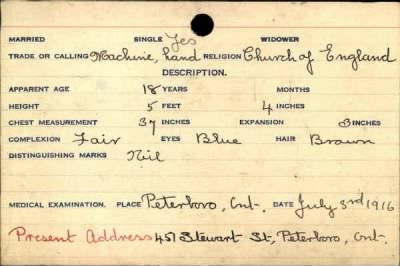 MARRIED SINGLE Yes WIDOWER
TRADE OR CALLING Machine, hand RELIGION Church of England
DESCRIPTION.
APPARENT AGE 18 YEARS MONTHS
HEIGHT 5 FEET 4 INCHES
CHEST MEASUREMENT 37 INCHES EXPANSION 3 INCHES
COMPLEXION Fair EYES Blue HAIR Brown
DISTINGUISHING MARKS Nil
MEDICAL EXAMINATION. PLACE Peterboro, Ont. DATE July 3rd 1916
Present Address 451 Stewart St, Peterboro, Ont.